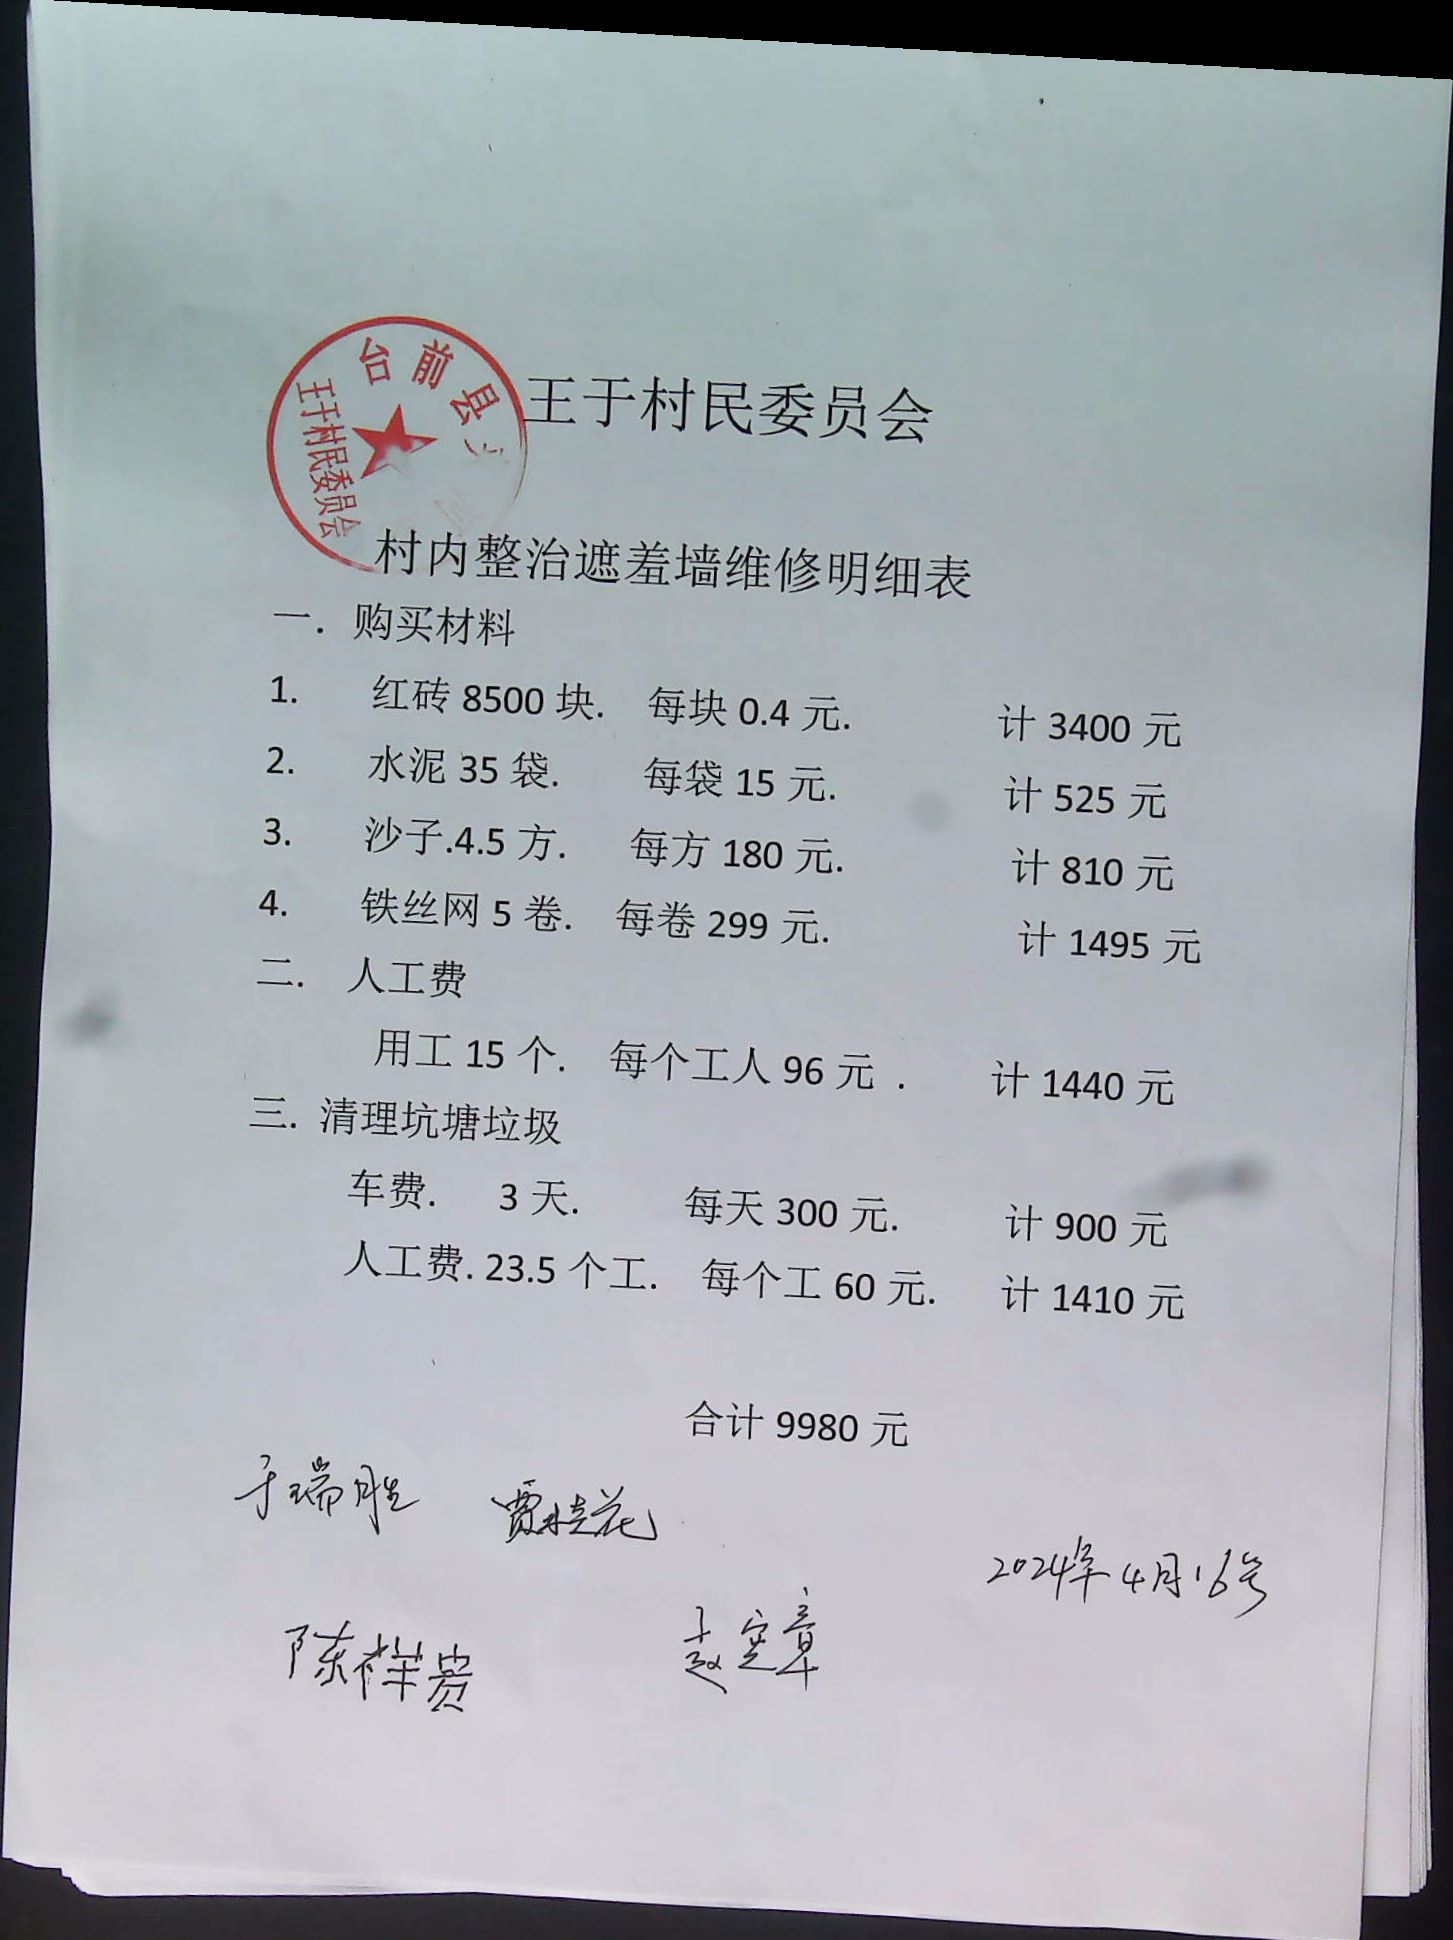 台前县
王于村民委员会
王于村民委员会
村内整治遮羞墙维修明细表
一. 购买材料
1. 红砖 8500 块. 每块 0.4 元. 计 3400 元
2. 水泥 35 袋. 每袋 15 元. 计 525 元
3. 沙子.4.5 方. 每方 180 元. 计 810 元
4. 铁丝网 5 卷. 每卷 299 元. 计 1495 元
二. 人工费
用工 15 个. 每个工人 96 元 . 计 1440 元
三. 清理坑塘垃圾
车费. 3 天. 每天 300 元. 计 900 元
人工费. 23.5 个工. 每个工 60 元. 计 1410 元
合计 9980 元
于瑞胜 贾桂花
2024年4月16号
陈祥贵 赵宪章